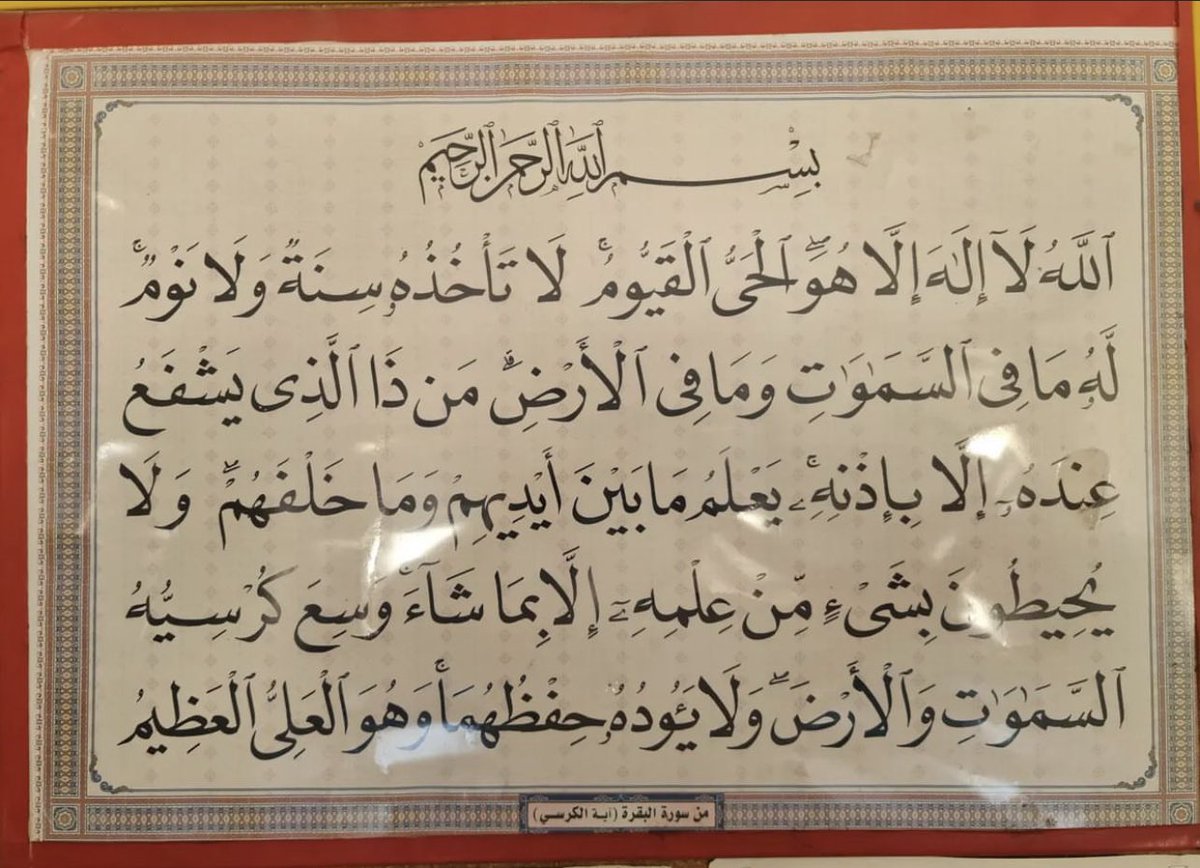 بِسْمِ ٱللَّهِ ٱلرَّحْمَٰنِ ٱلرَّحِيمِ
ٱللَّهُ لَآ إِلَٰهَ إِلَّا هُوَ ۖ ٱلْحَىُّ ٱلْقَيُّومُ ۚ لَا تَأْخُذُهُۥ سِنَةٌ وَلَا نَوْمٌ ۚ
لَّهُۥ مَا فِى ٱلسَّمَٰوَٰتِ وَمَا فِى ٱلْأَرْضِ ۗ مَن ذَا ٱلَّذِى يَشْفَعُ
عِندَهُۥٓ إِلَّا بِإِذْنِهِۦ ۚ يَعْلَمُ مَا بَيْنَ أَيْدِيهِمْ وَمَا خَلْفَهُمْ ۖ وَلَا
يُحِيطُونَ بِشَىْءٍ مِّنْ عِلْمِهِۦٓ إِلَّا بِمَا شَآءَ ۚ وَسِعَ كُرْسِيُّهُ
ٱلسَّمَٰوَٰتِ وَٱلْأَرْضَ ۖ وَلَا يَـُٔودُهُۥ حِفْظُهُمَا ۚ وَهُوَ ٱلْعَلِىُّ ٱلْعَظِيمُ
من سورة البقرة (آية الكرسي)